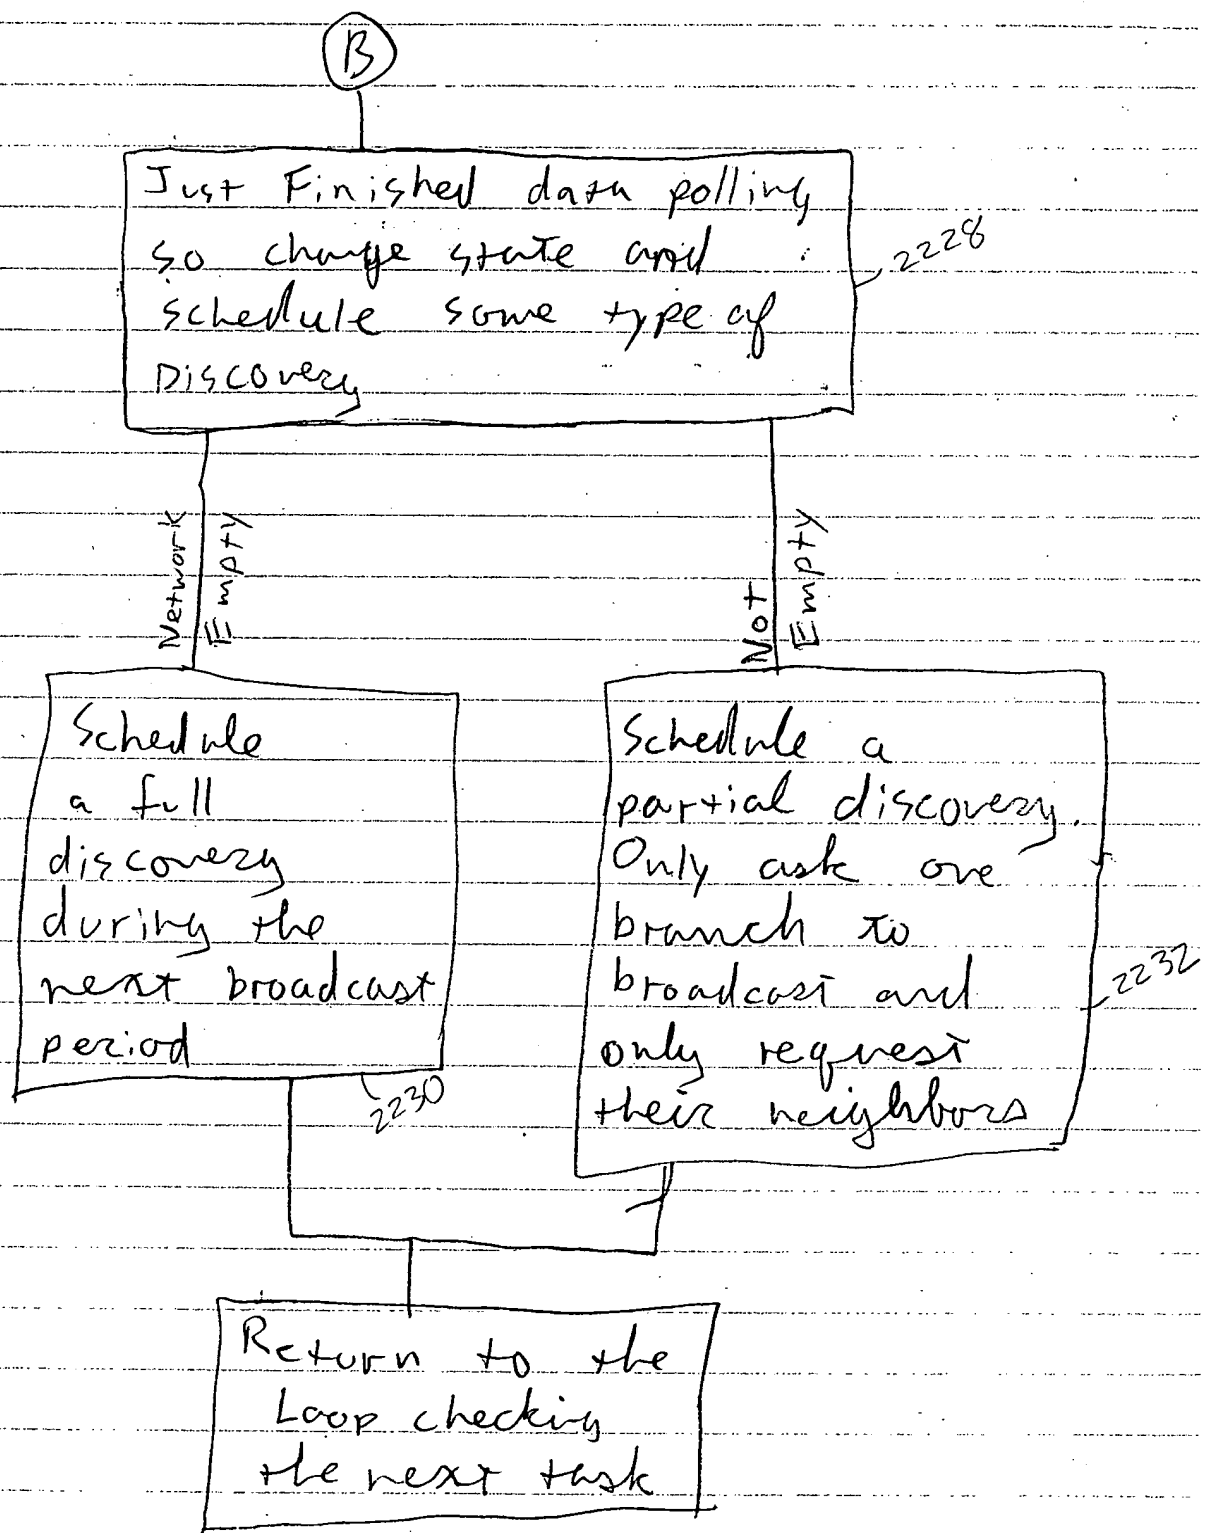 B
Just Finished data polling
so change state and
schedule some type of
Discovery
2228
Network
Empty
Not
Empty
Schedule
a full
discovery
during the
next broadcast
period
2230
Schedule a
partial discovery.
Only ask one
branch to
broadcast and
only request
their neighbors
2232
Return to the
Loop checking
the next task